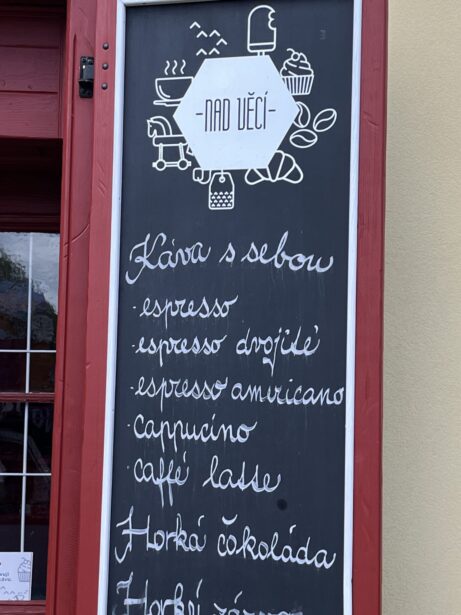 -NAD VĚCÍ-
Káva s sebou
· espresso
· espresso dvojité
· espresso americano
· cappucino
· caffé latte
Horká čokoláda